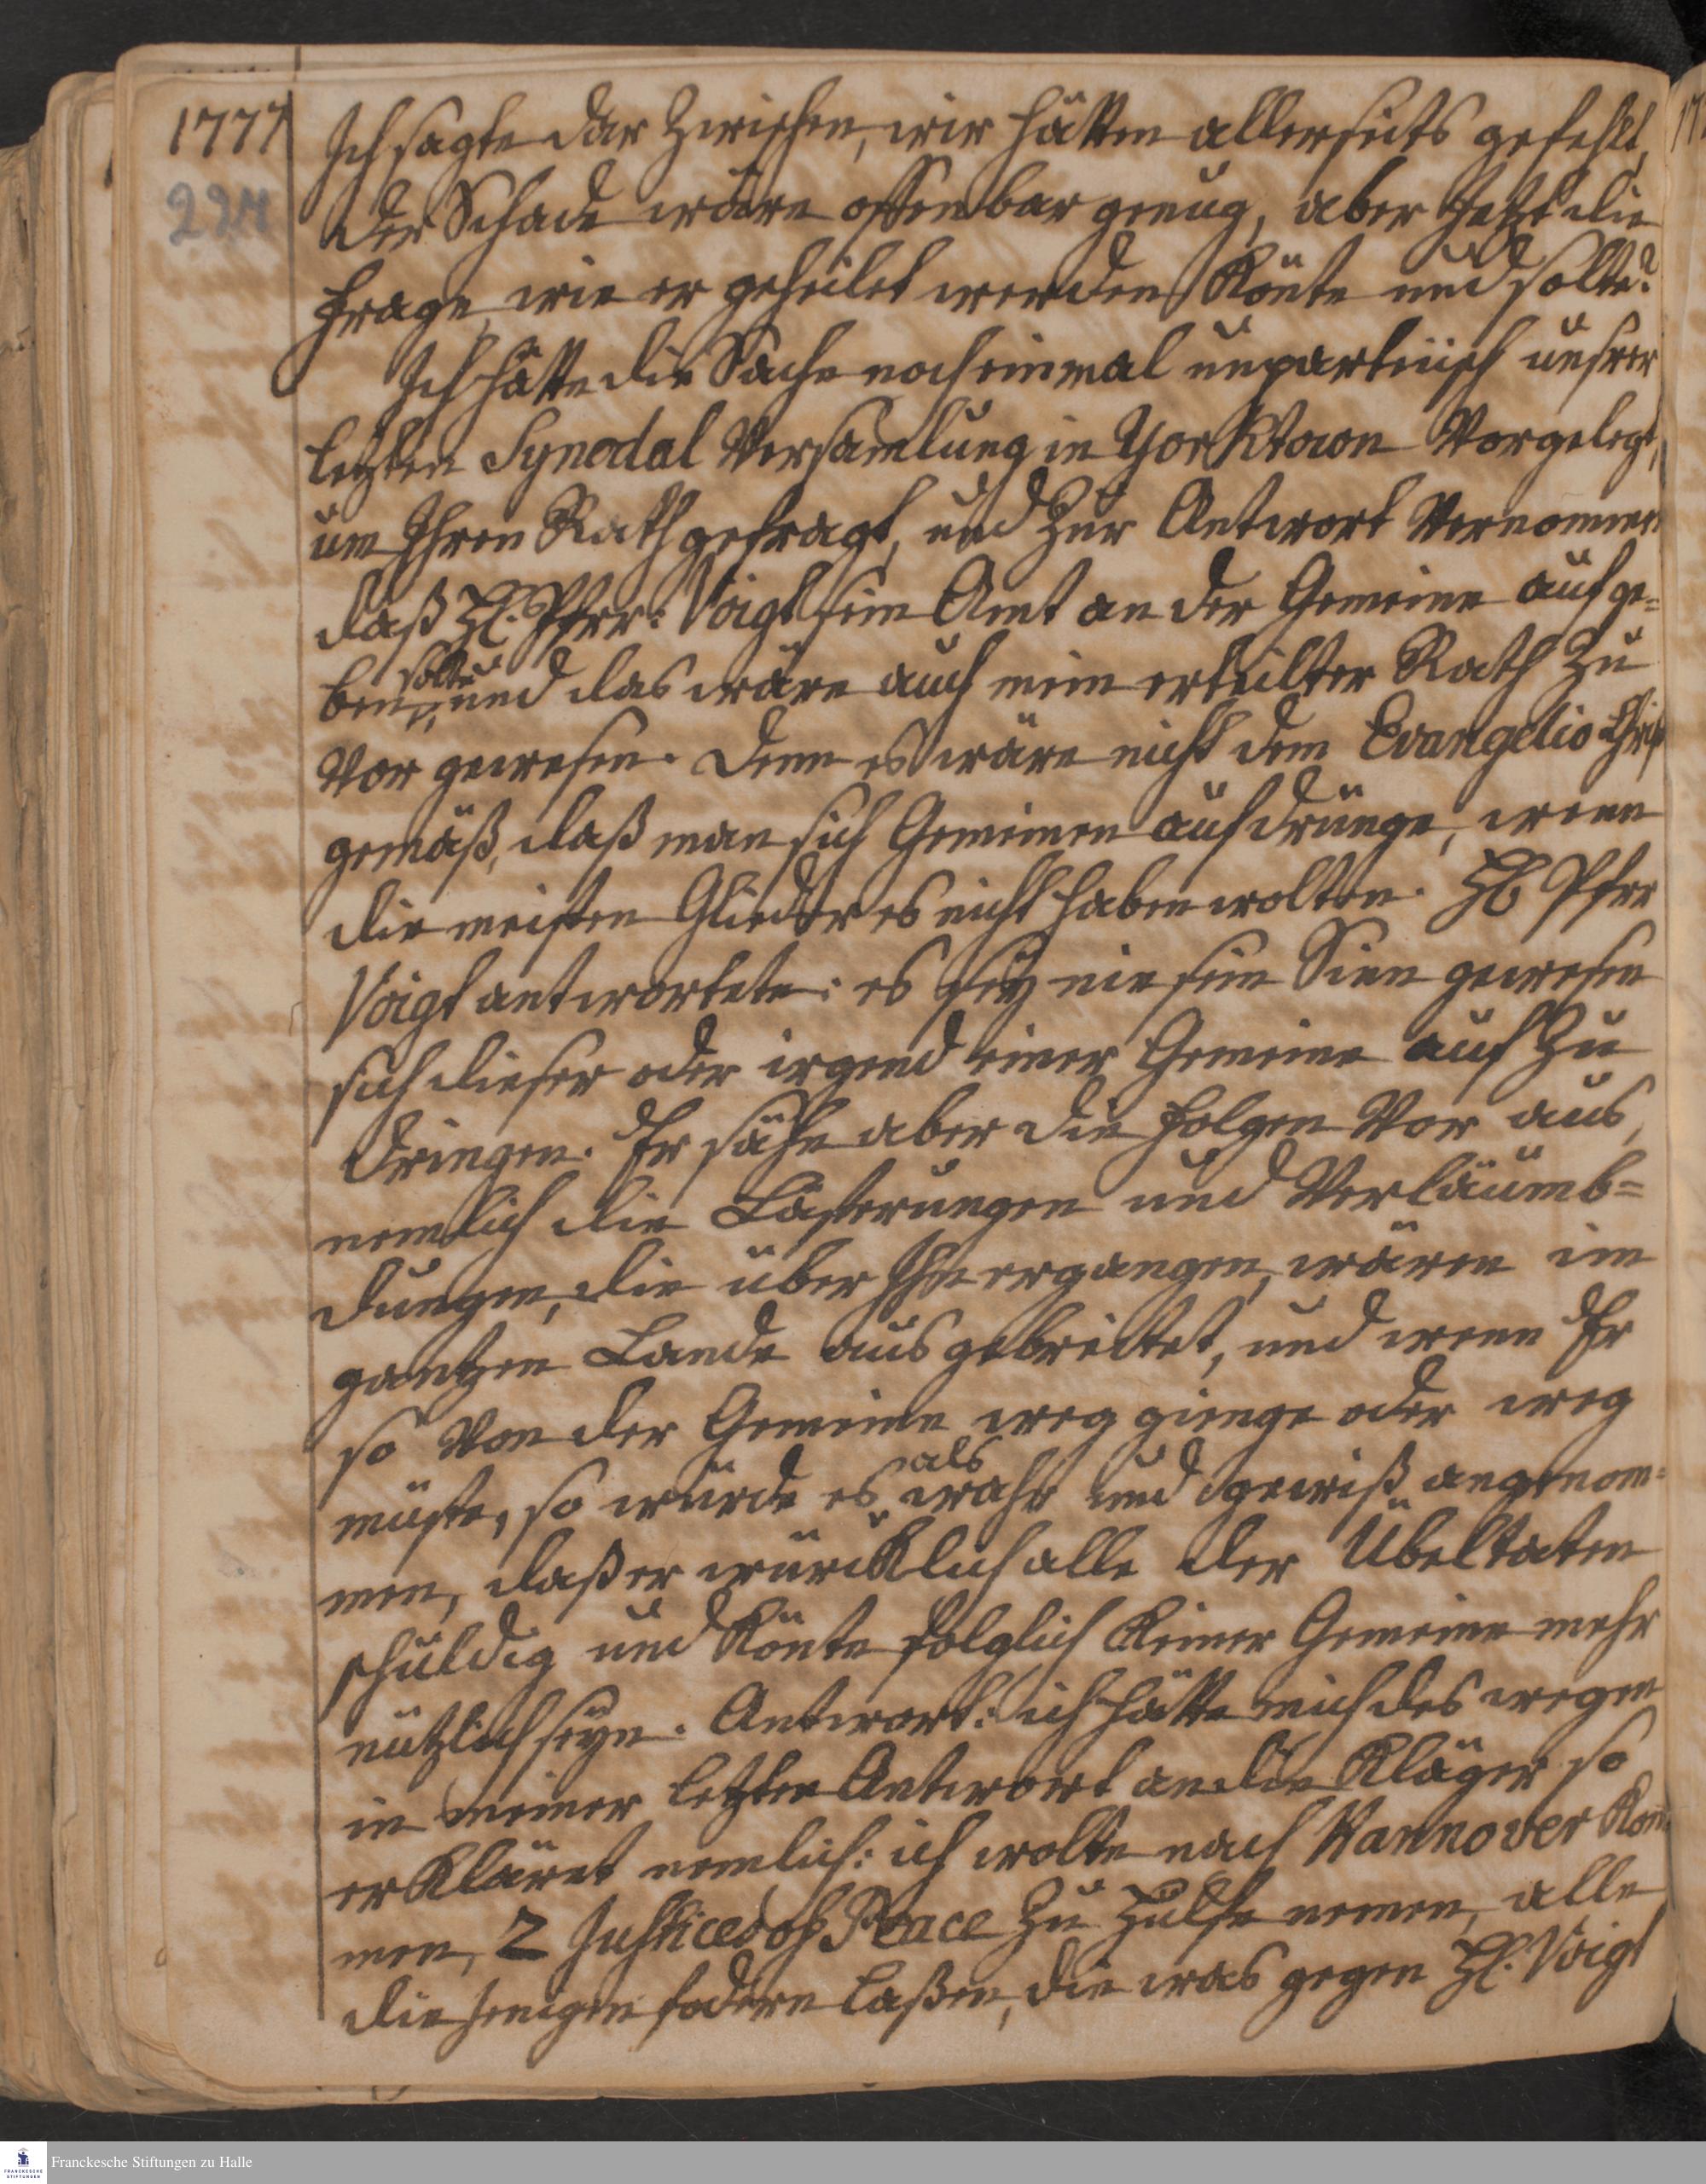 1777
224
Ich sagte dar Zwischen, wir hätten allerseits gefehlt,
der Schade wäre offenbar genug, aber Jetzt die
Frage, wie er geheilet werden Könte und solte?
Ich hätte die Sache noch einmal unparteiisch unsrer
letzten Synodal Versamlung in Yorktown Vorgelegt,
um Ihren Rath gefragt, und Zur Antwort Vernommen
daß HE. Pfrr: Voigt sein Amt an der Gemeine aufge=
ben solte, und das wäre auch mein ertheilter Rath Zu
Vor gewesen. Denn es wäre nicht dem Evangelio Christi
gemäß, daß man sich Gemeinen aufdrünge, wenn
die meisten Glieder es nicht haben wolten. HE Pfrr
Voigt antwortete: es sey nie sein Sinn gewesen
sich dieser oder irgend einer Gemeine auf Zu
dringen. Er sähe aber die Folgen Vor aus,
nemlich die Lästerungen und Verläumb=
dungen, die über Ihn ergangen, wären im
gantzen Lande ausgebreitet, und wenn Er
so Von der Gemeine weg gienge oder weg
müste, so würde es als wahr und gewiß angenom=
men, daß er würcklich alle der Übeltaten
schuldig und Könte folglich Keiner Gemeine mehr
nützlich seyn. Antwort: ich hätte mich des wegen
in meiner letzten Antwort an die Kläger so
erKläret nemlich: ich wolte nach Hannover Kom¯
men, 2 Justices of Peace Zu Hülfe nemen, alle
die Jenigen fodern laßen, die was gegen HE. Voigt
Franckesche Stiftungen zu Halle
FRANCKESCHE
STIFTUNGEN